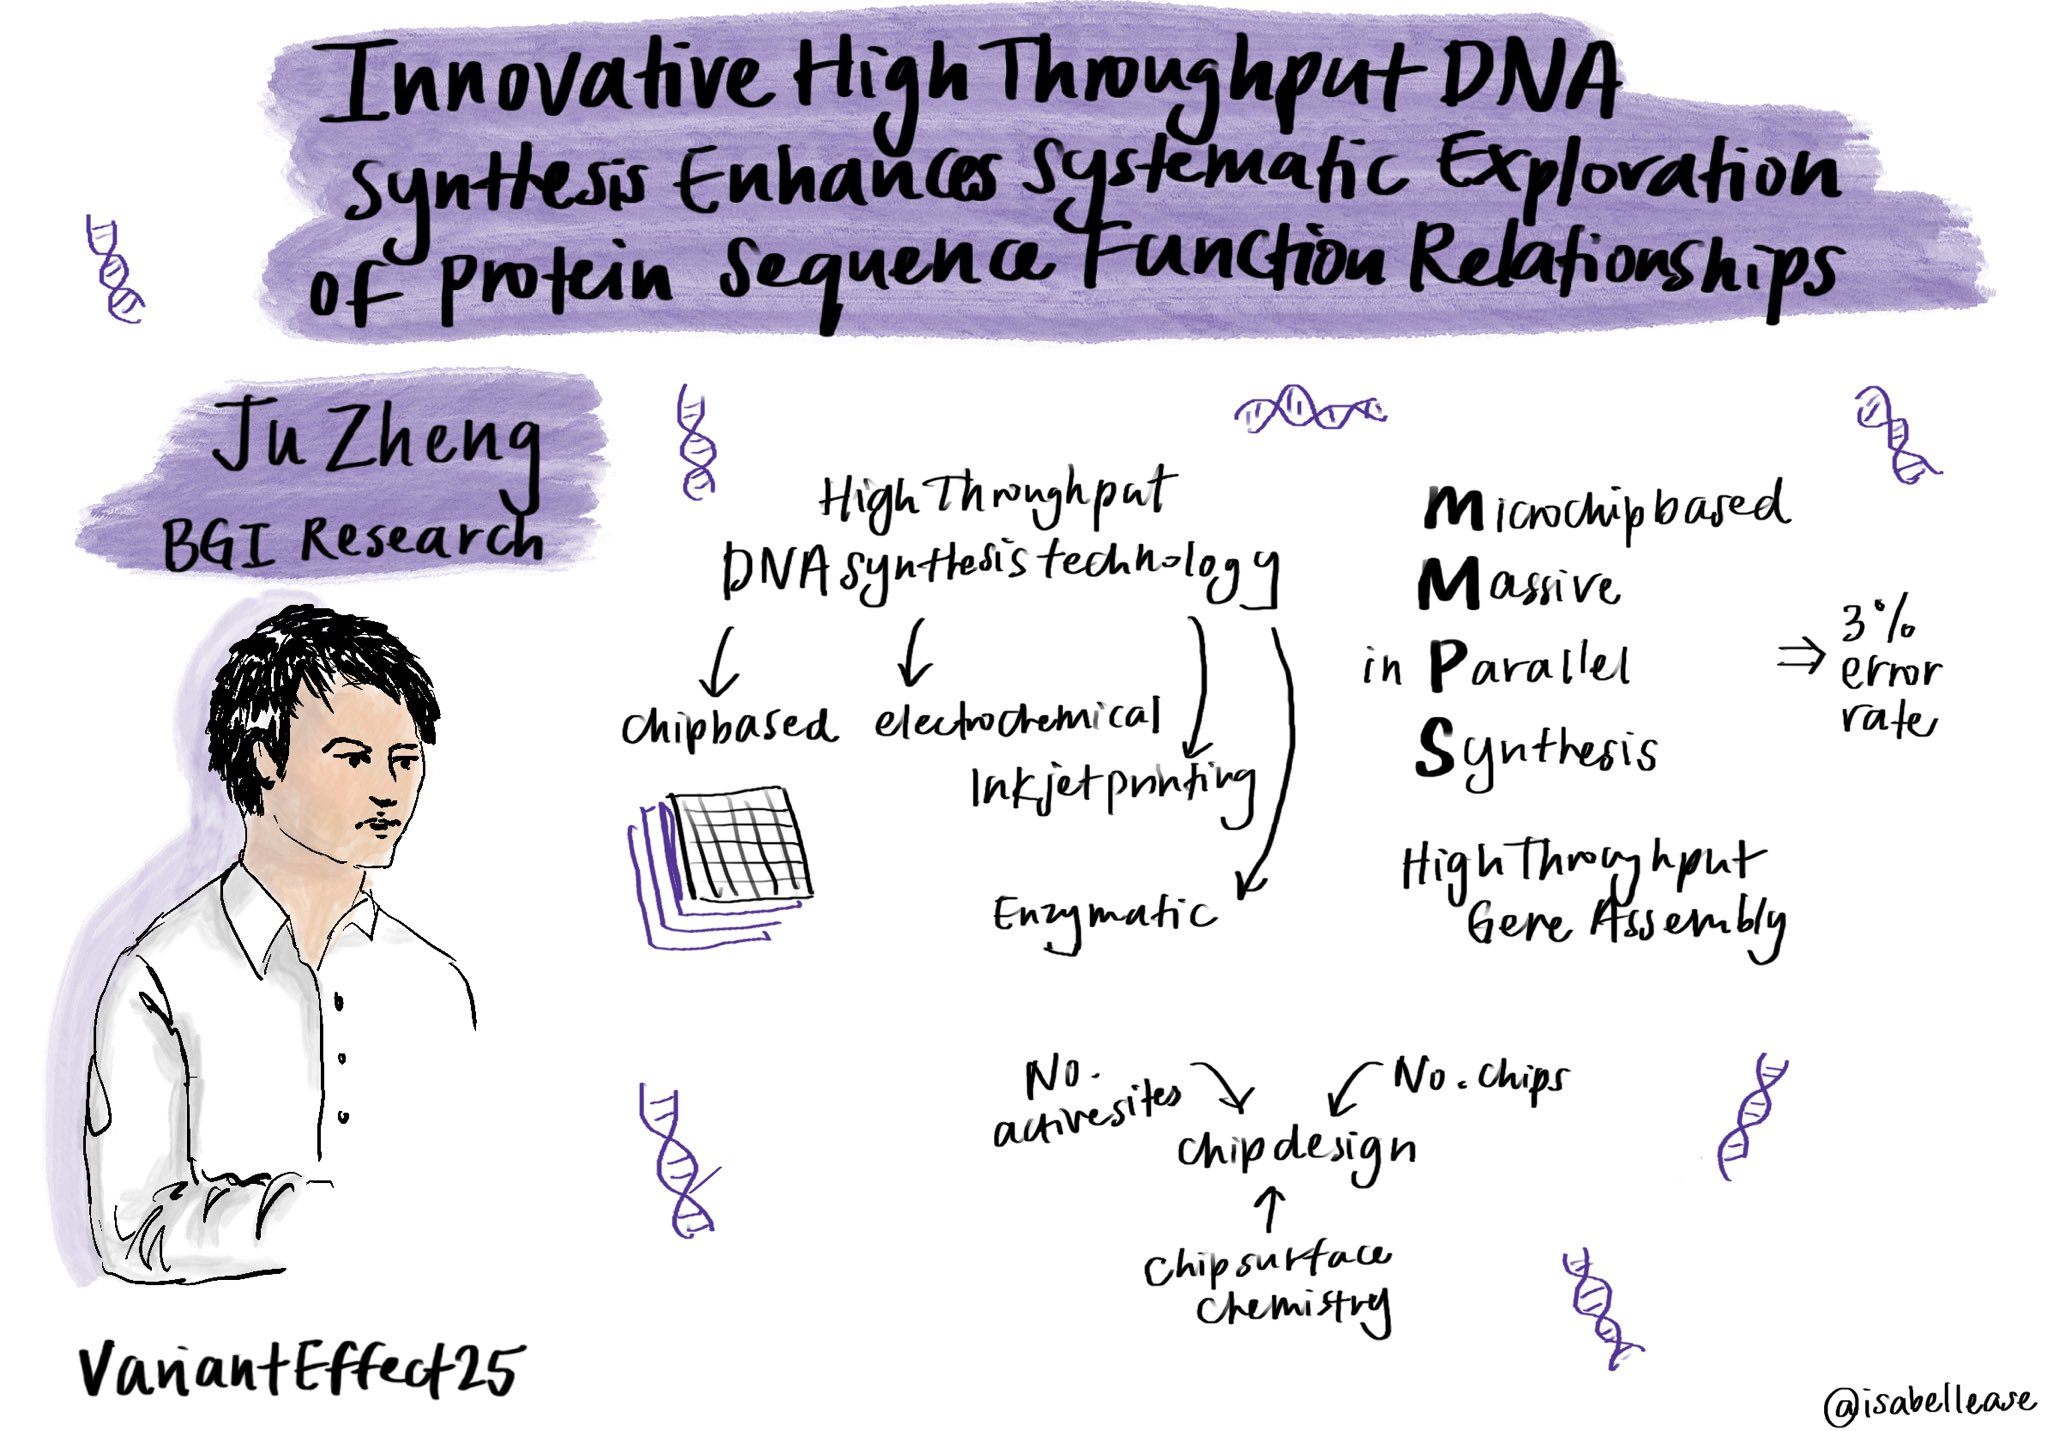 Innovative High Throughput DNA
Synthesis Enhances Systematic Exploration
of Protein Sequence Function Relationships
Ju Zheng
BGI Research
High Throughput
DNA synthesis technology
chip based
electrochemical
Inkjet printing
Enzymatic
Microchip based
Massive
in Parallel
Synthesis
⇒ 3% error rate
High Throughput
Gene Assembly
No. active sites
No. chips
chip design
chip surface
chemistry
VariantEffect25
@isabellease